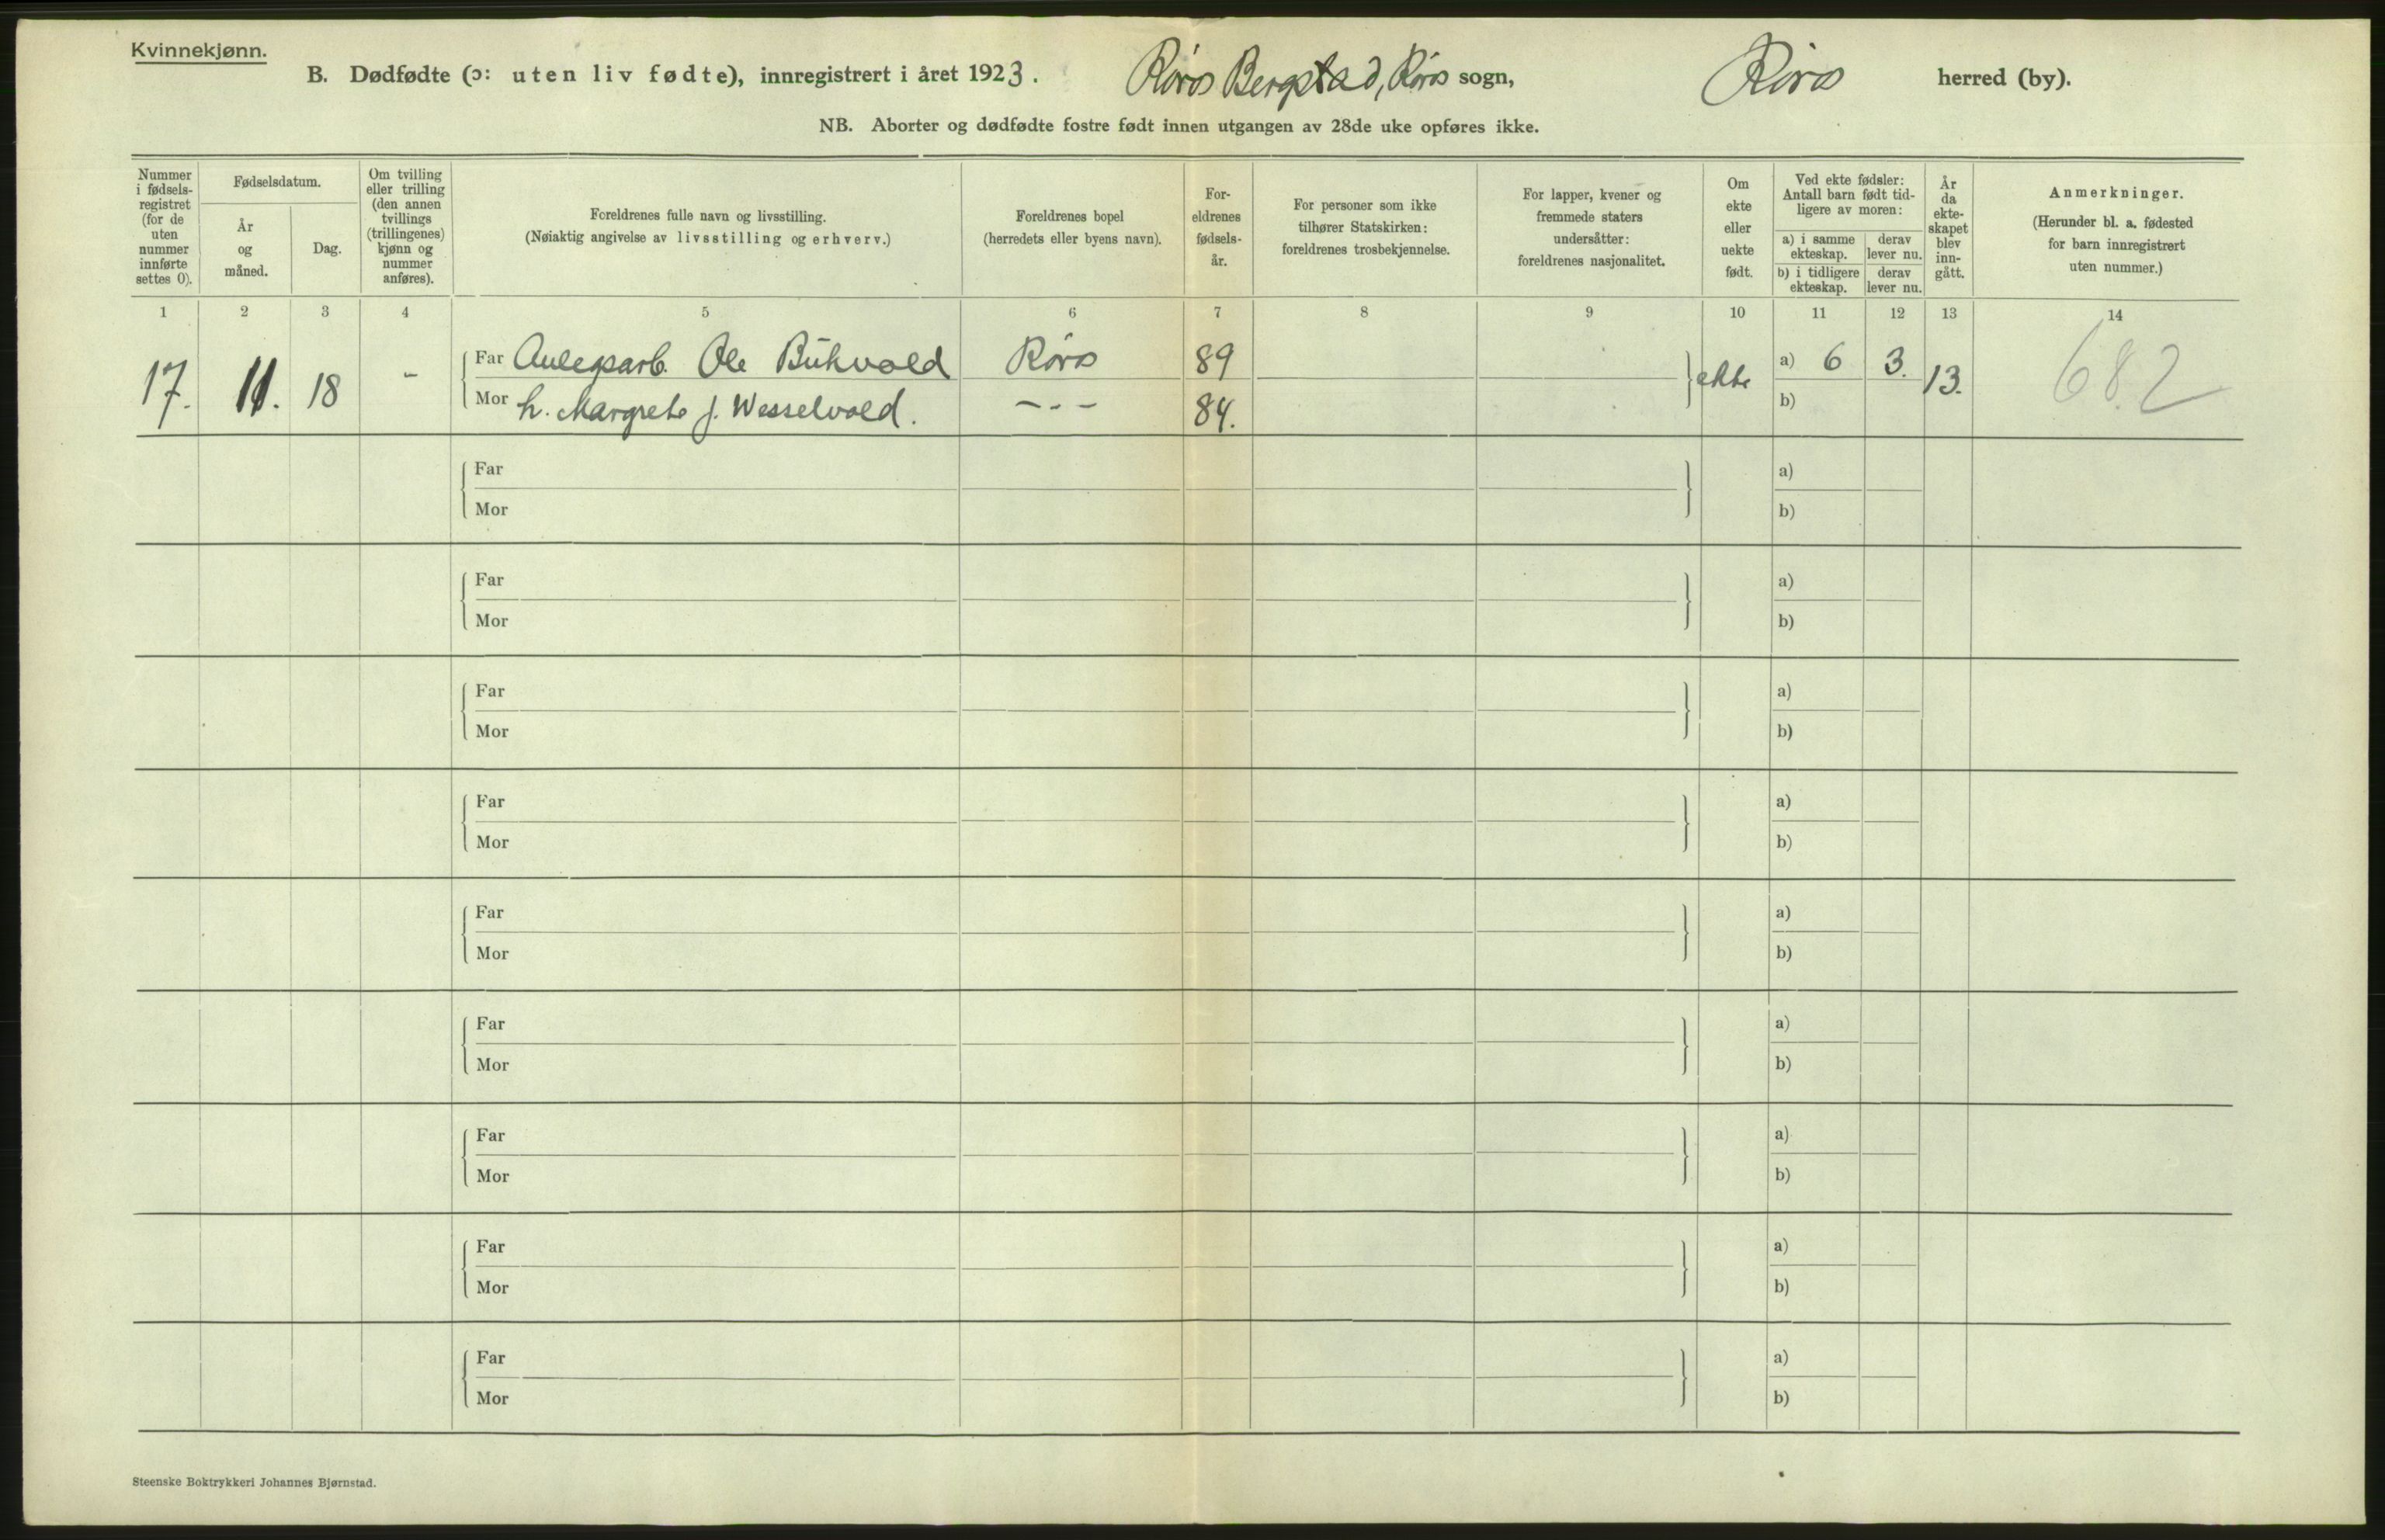 Kvinnekjønn.
B. Dødfødte (ɔ: uten liv fødte), innregistrert i året 1923. Røros Bergstad, Røros sogn, Røros herred (by).
NB. Aborter og dødfødte fostre født innen utgangen av 28de uke opføres ikke.
Nummer
i fødsels-
registret
(for de
uten
nummer
innførte
settes 0).
Fødselsdatum.
År
og
måned.
Dag.
Om tvilling
eller trilling
(den annen
tvillings
(trillingenes)
kjønn og
nummer
anføres).
Foreldrenes fulle navn og livsstilling.
(Nøiaktig angivelse av livsstilling og erhverv.)
Foreldrenes bopel
(herredets eller byens navn).
For-
eldrenes
fødsels-
år.
For personer som ikke
tilhører Statskirken:
foreldrenes trosbekjennelse.
For lapper, kvener og
fremmede staters
undersåtter:
foreldrenes nasjonalitet.
Om
ekte
eller
uekte
født.
Ved ekte fødsler:
Antall barn født tid-
ligere av moren:
a) i samme
ekteskap.
derav
lever nu.
b) i tidligere
ekteskap.
derav
lever nu.
År
da
ekte-
skapet
blev
inn-
gått.
Anmerkninger.
(Herunder bl. a. fødested
for barn innregistrert
uten nummer.)
1 2 3 4 5 6 7 8 9 10 11 12 13 14
17. 11. 18 -
Far Anlegsarb. Ole Bukvold Røros 89
Mor h. Margrete f. Wesselvold. - - - 84.
ekte
a) 6 3.
b)
13.
682
Far a)
Mor b)
Far a)
Mor b)
Far a)
Mor b)
Far a)
Mor b)
Far a)
Mor b)
Far a)
Mor b)
Far a)
Mor b)
Far a)
Mor b)
Far a)
Mor b)
Steenske Boktrykkeri Johannes Bjørnstad.